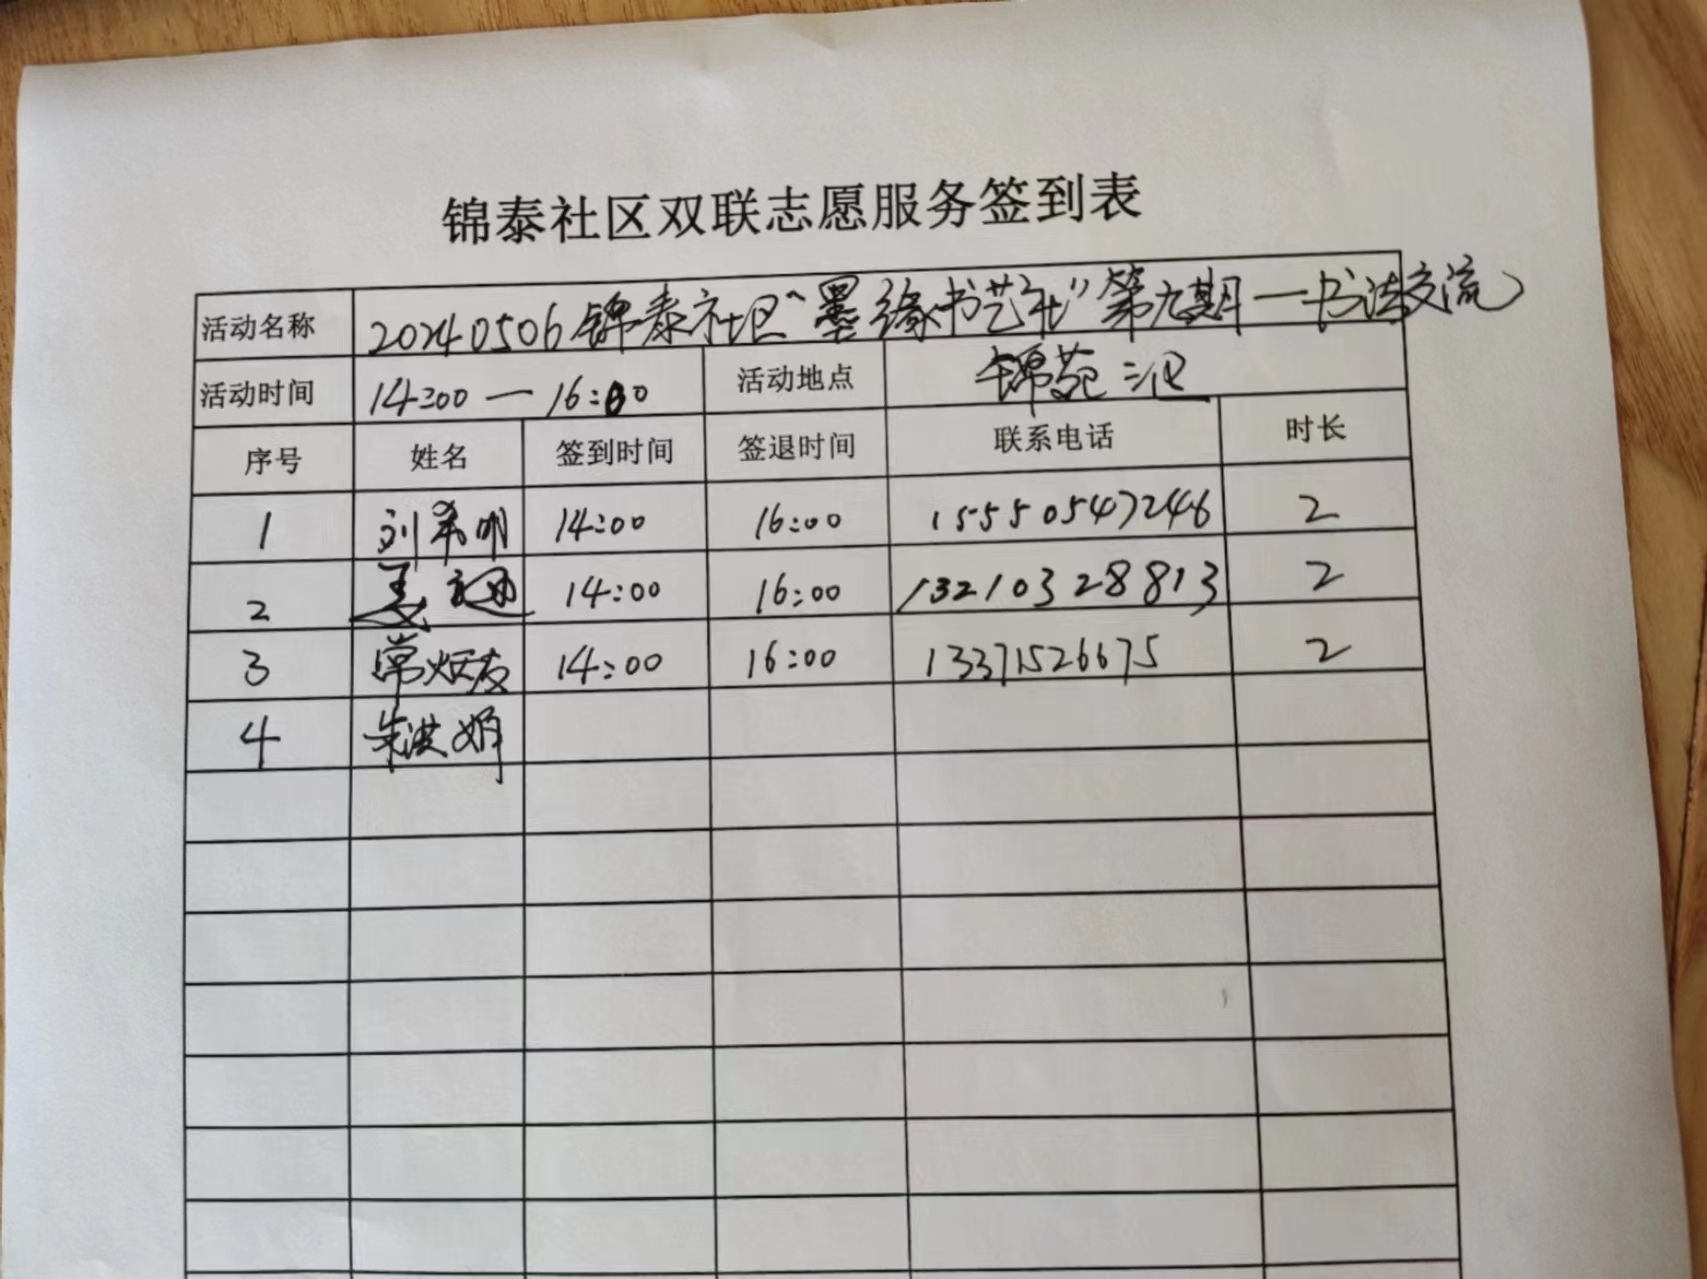 锦泰社区双联志愿服务签到表
活动名称 20240506锦泰社区“墨缘书艺社”第九期—书法交流
活动时间 14:00 — 16:00 活动地点 锦苑三区
序号 姓名 签到时间 签退时间 联系电话 时长
1 刘希明 14:00 16:00 15550547246 2
2 14:00 16:00 13210328813 2
3 常炳友 14:00 16:00 13371526675 2
4 朱洪娟